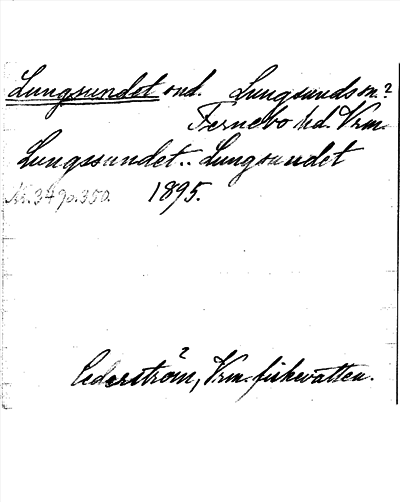 Lungsundet sud. Lungsunds sn.?
Fernebo hd. Vrm.
Lungssundet.. Lungsundet
Nr. 349 o. 350. 1895.
Cederström, Vrm. fiskevatten.